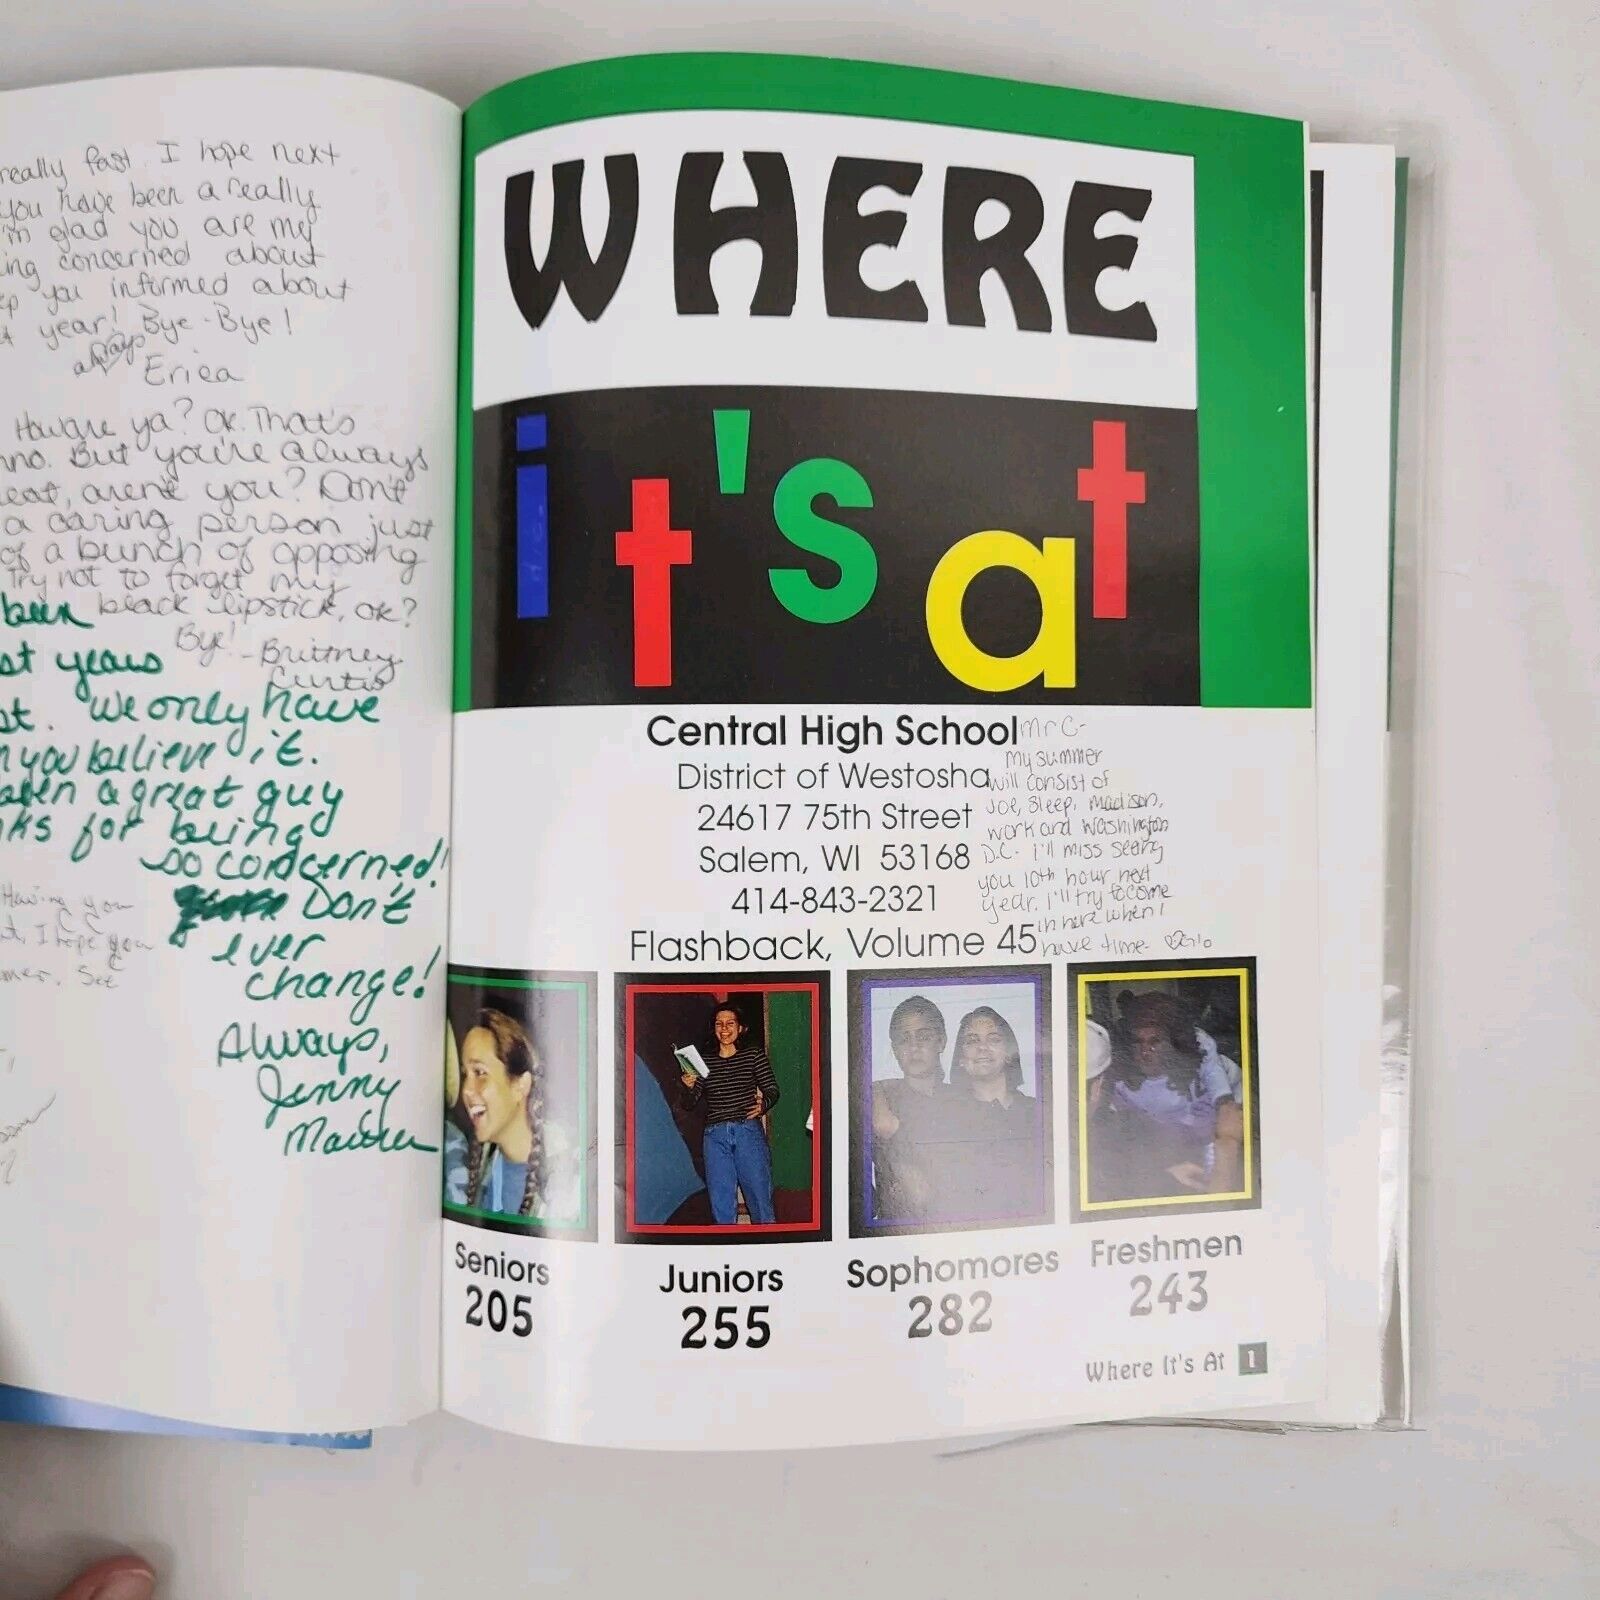 really fast. I hope next
you have been a really
I'm glad you are my
ing concerned about
ep you informed about
year! Bye-Bye!
always
Erica
How are ya? Ok. That's
nno. But you're always
eat, aren't you? Don't
a caring person just
of a bunch of opposing
Try not to forget my
been black lipstick, ok?
Bye! -Brittney
Curtis
st years
st. We only have
n you believe it.
been a great guy
nks for being
so concerned!
Don't
ever
change!
Always,
Jenny
Having you
t, I hope you
mer. See
WHERE
it's at
Central High School
District of Westosha
24617 75th Street
Salem, WI 53168
414-843-2321
Flashback, Volume 45
Mr C-
my summer
will consist of
Joe, sleep, Madison,
work and Washington
D.C. I'll miss seeing
you 10th hour next
year. I'll try to come
in here when I
have time.
Seniors
205
Juniors
255
Sophomores
282
Freshmen
243
Where It's At 1